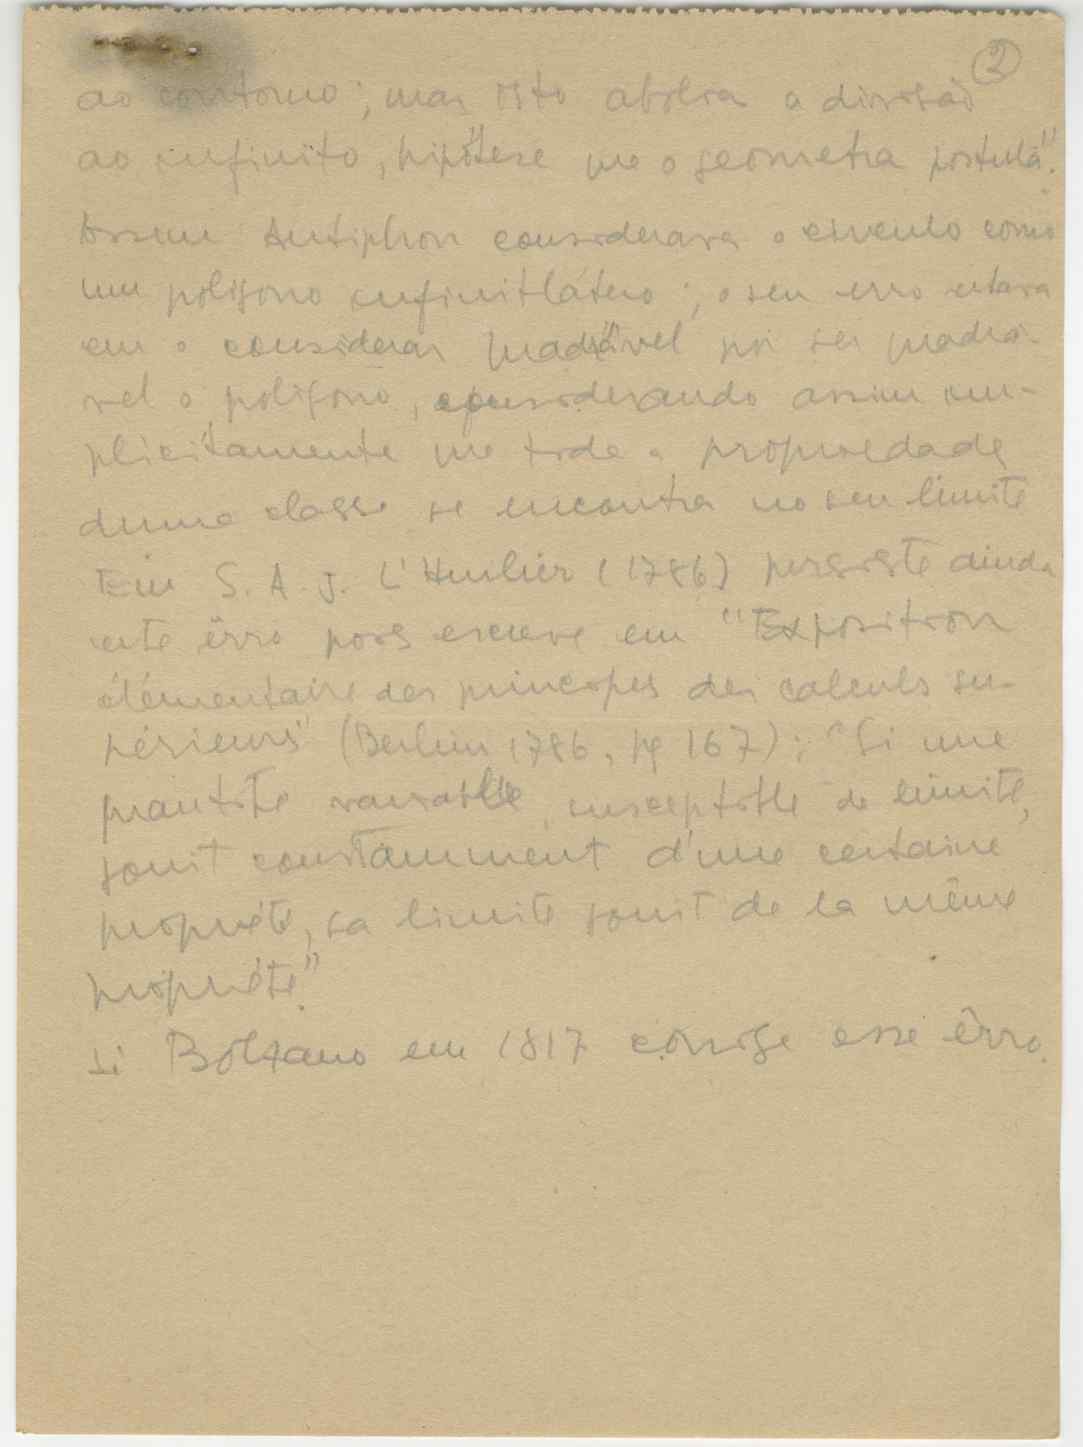 ②
ao contorno; mas isto abolia a divisão
ao infinito, hipótese que o geometra postula".
Assim Antiphon considerava o circulo como
um poligono infinitlátero; o seu erro estava
em o considerar quadrável por ser quadrá-
vel o poligono, considerando assim im-
plicitamente que toda a propriedade
duma classe se encontra no seu limite
Em S. A. J. L'Huilier (1786) persiste ainda
este êrro pois escreve em "Exposition
élémentaire des principes des calculs su-
périeurs" (Berlim 1786, pg 167): "Si une
quantité variable susceptible de limite,
jouit constamment d'une certaine
propriété, sa limite jouit de la même
propriété".
Só Bolzano em 1817 corrige esse êrro.